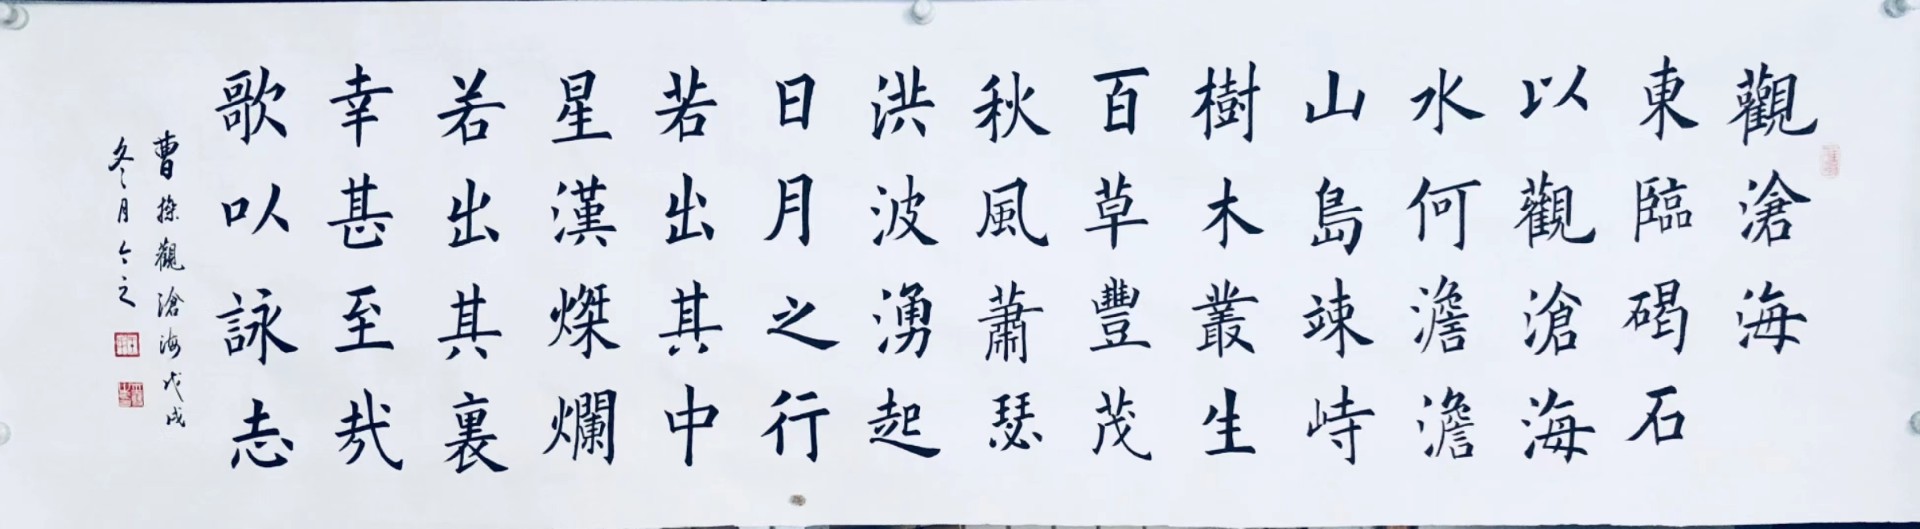 觀滄海
東臨碣石
以觀滄海
水何澹澹
山島竦峙
樹木叢生
百草豐茂
秋風蕭瑟
洪波湧起
日月之行
若出其中
星漢燦爛
若出其裏
幸甚至哉
歌以詠志
曹操觀滄海戊戌
冬月